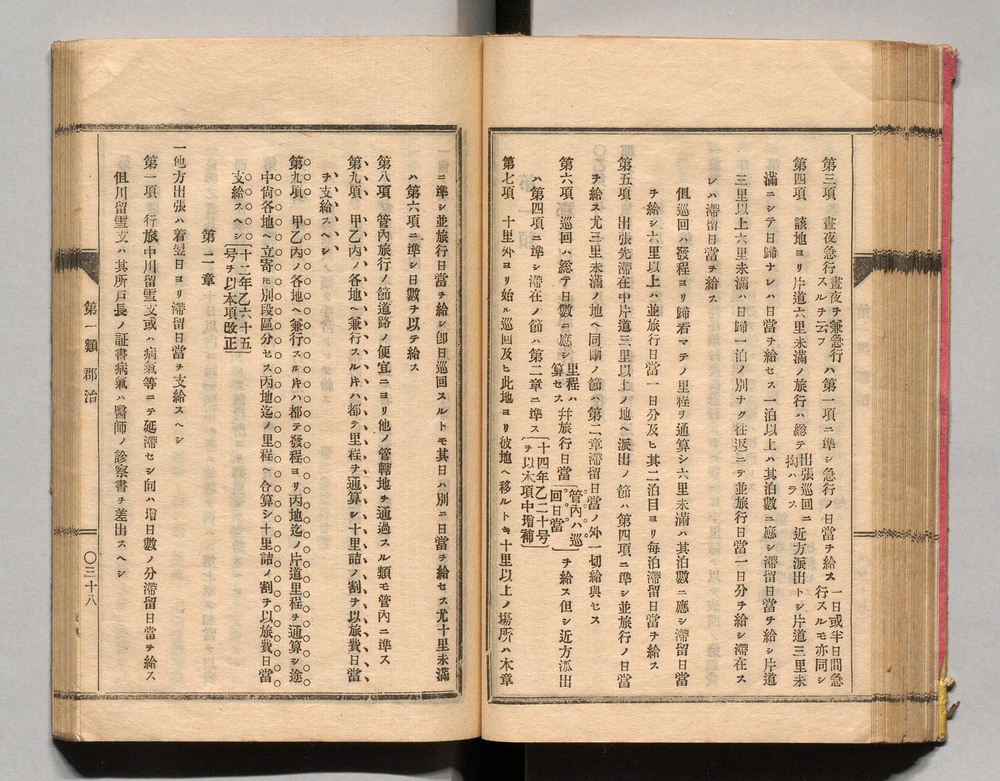 第三項 晝夜急行晝夜ヲ兼急行スルヲ云フハ第一項ニ準シ急行ノ日當ヲ給ス一日或半日間急行スルモ亦同シ
第四項 該地ヨリ片道六里未滿ノ旅行ハ總テ出張巡回ニ拘ハラス近方派出トシ片道三里未
滿ニシテ日歸ナレハ日當ヲ給セス一泊以上ハ其泊數ニ應シ滯留日當ヲ給シ片道
三里以上六里未滿ハ日歸一泊ノ別ナク往返ニテ並旅行日當一日分ヲ給シ滯在ス
レハ滯留日當ヲ給ス
但巡回ハ發程ヨリ歸着マテノ里程ヲ通算シ六里未滿ハ其泊數ニ應シ滯留日當
ヲ給シ六里以上ハ並旅行日當一日分及ヒ其二泊目ヨリ每泊滯留日當ヲ給ス
第五項 出張先滯在中片道三里以上ノ地ヘ派出ノ節ハ第四項ニ準シ並旅行ノ日當
ヲ給ス尤三里未滿ノ地ヘ同斷ノ節ハ第二章滯留日當ノ外一切給與セス
第六項 巡回ハ總テ日數ニ應シ里程ハ算セス幷旅行日當管內ハ巡回日當ヲ給ス但シ近方派出
ハ第四項ニ準シ滯在ノ節ハ第二章ニ準ス十四年乙二十號ヲ以本項中增補
第七項 十里外ヨリ始メ巡回及ヒ此地ヨリ彼地ヘ移ルトキ十里以上ノ場所ハ本章
ニ準シ並旅行日當ヲ給シ卽日巡回スルトモ其日ハ別ニ日當ヲ給セス尤十里未滿
ハ第六項ニ準シ日數ヲ以テ給ス
第八項 管內旅行ノ節道路ノ便宜ニヨリ他ノ管轄地ヲ通過スル類モ管內ニ準ス
第九項 甲乙丙ノ各地ヘ兼行スル片ハ都テ里程ヲ通算シ十里詰ノ割ヲ以旅費日當
ヲ支給スヘシ
第九項 甲乙丙ノ各地ヘ兼行スル片ハ都テ發程ヨリ丙地迄ノ片道里程ヲ通算シ途
中尙各地ヘ立寄ヒ別段區分セス丙地迄ノ里程ヘ合算シ十里詰ノ割ヲ以旅費日當
支給スヘシ十二年乙六十五号ヲ以本項改正
第二章
一他方出張ハ着翌日ヨリ滯留日當ヲ支給スヘシ
第一項 行旅中川留雪支或ハ病氣等ニテ延滯セシ向ハ增日數ノ分滯留日當ヲ給ス
但川留雪支ハ其所戶長ノ証書病氣ハ醫師ノ診察書ヲ差出スヘシ
第一類 郡治
〇三十八